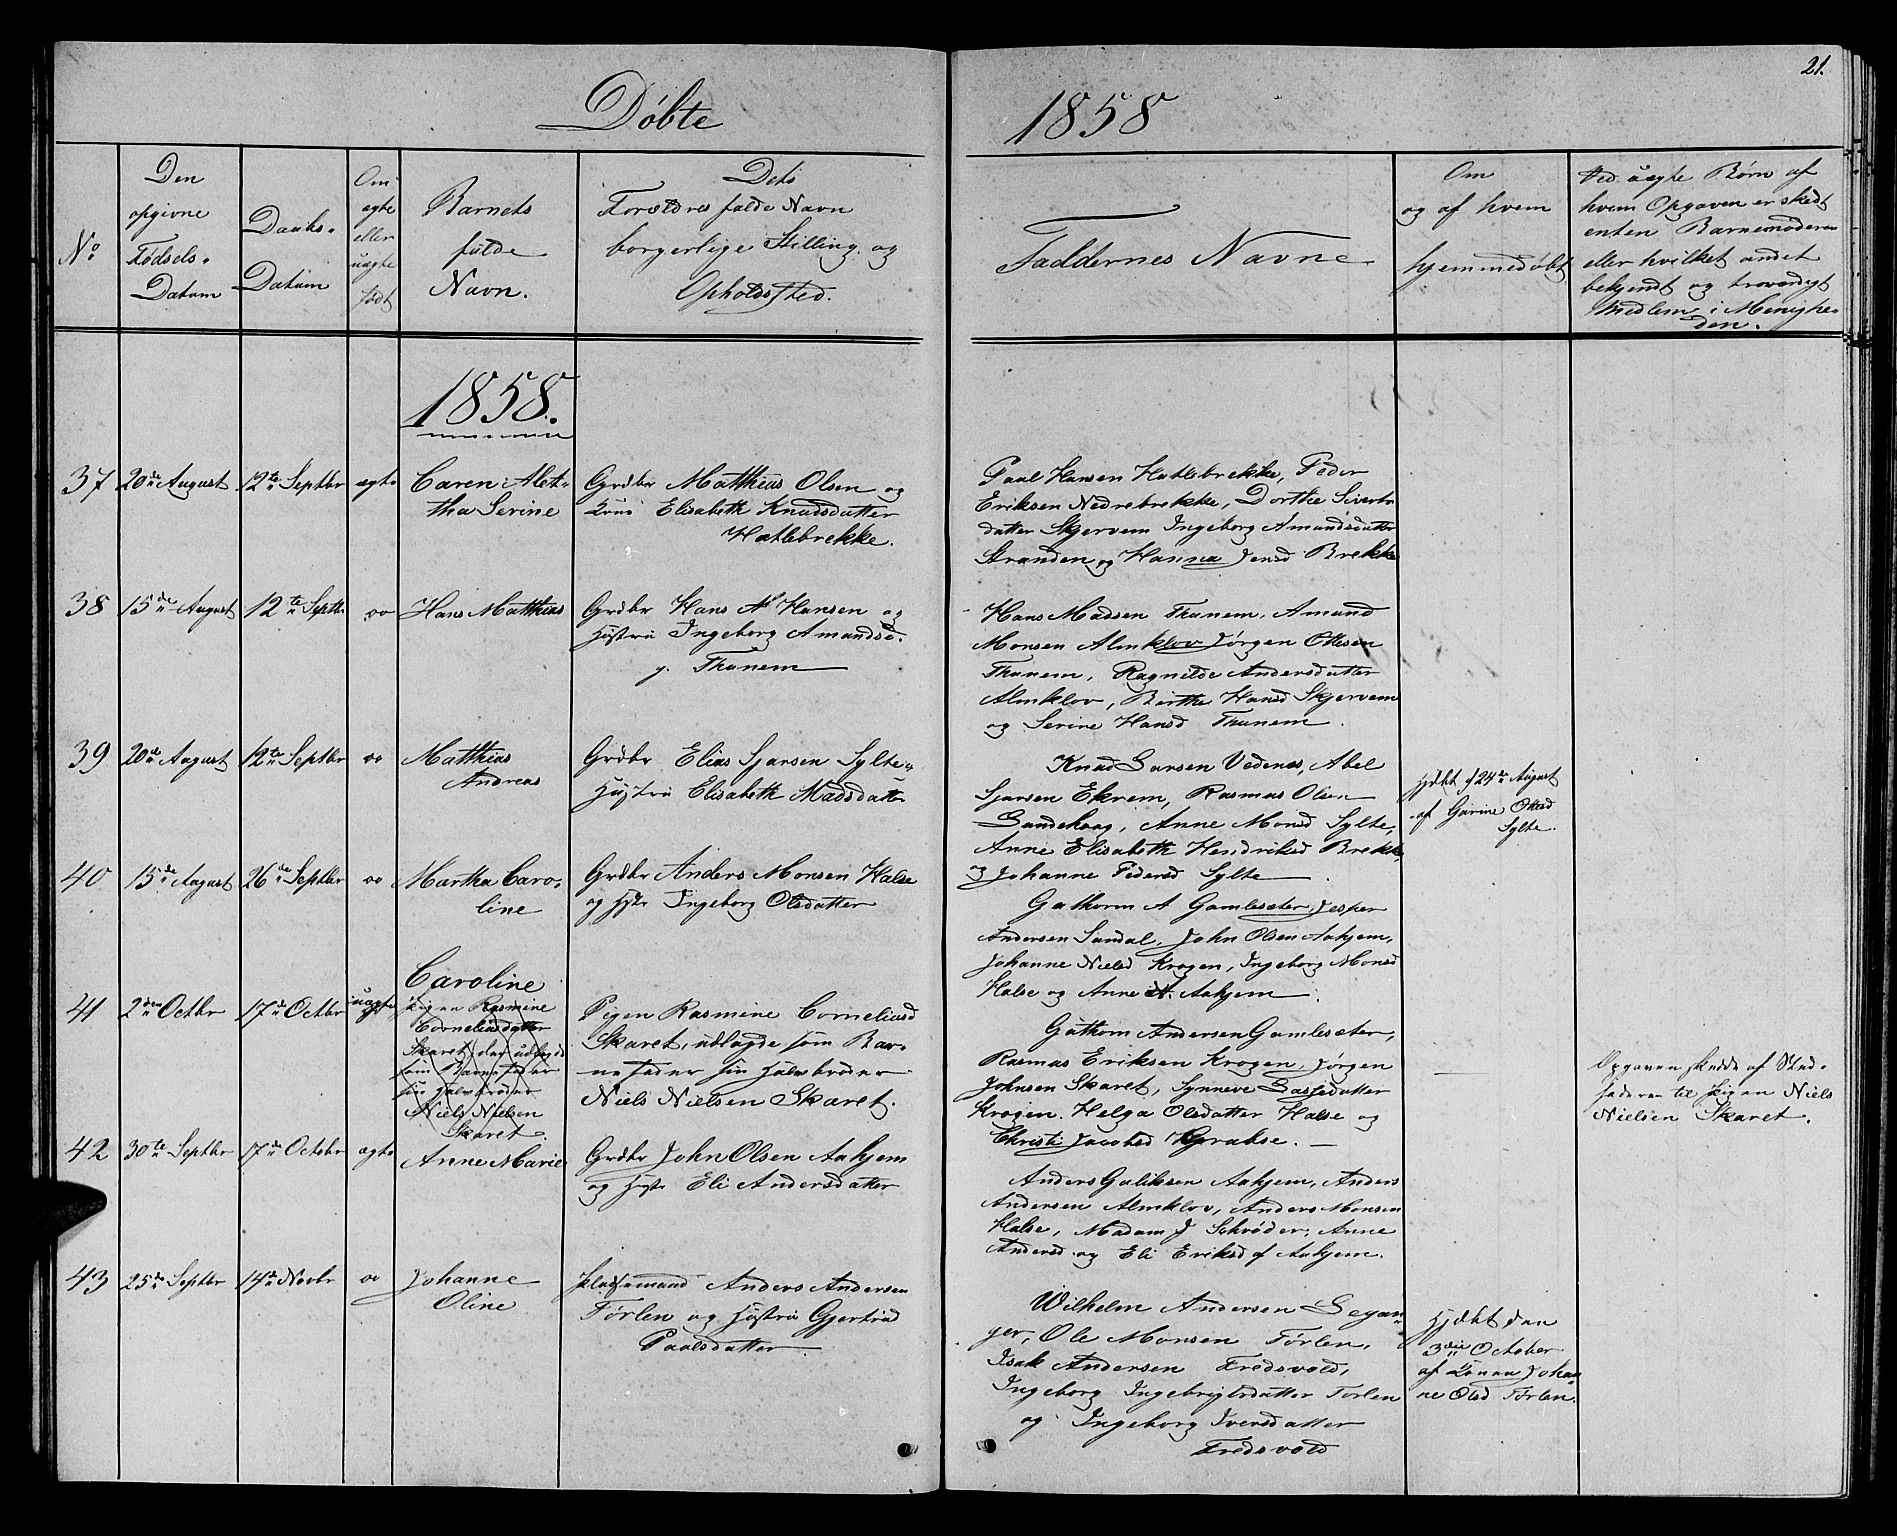 21.
Døbte
1858
No
Den
opgivne
Fødsels-
Datum
Daabs-
Datum
Om
ægte
eller
uægte
født
Barnets
fulde
Navn.
Dets
Forældres fulde Navn
borgerlige Stilling og
Opholdssted.
Faddernes Navne
Om
og af hvem
hjemmedøbt
Ved uægte Børn af
hvem Opgaven er skedt
enten Barnemoderen
eller hvilket andet
bekjendt og troværdigt
Medlem i Menighe-
den.
1858.
37
20de August
12te Septbr
ægte
Caren Alet-
tha Serine
Grdbr Matthias Olsen og
Kone Elisabeth Knudsdatter
Hatlebrekke.
Paul Hansen Hatlebrekke, Peder
Eriksen Nedrebrekke, Dorthe Siverts
datter Skjervem Ingeborg Amundsdatter
Stranden og Hanna Jensd Brekke
38
15de August
12te Septbr
oo
Hans Matthias
Grdbr Hans M Hansen og
Hustru Ingeborg Amundsd.
g. Thunem
Hans Madsen Thunem, Amund
Monsen Almklov Jørgen Ottesen
Thunem, Ragnilde Andersdatter
Almklov, Birthe Hansd Skjervem
og Serine Hansd Thunem.
39
20de August
12te Septbr
oo
Matthias
Andreas
Grdbr Elias Sjursen Sylte
Hustru Elisabeth Madsdatter
Knud Larsen Vedenes, Abel
Sjursen Ekrem, Rasmus Olsen
Sandehaug, Anne Monsd Sylte,
Anne Elisabeth Hendriksd Brekke
og Johanne Pedersd Sylte.
hjdbt d 24de August
af Gurine Ottesd
Sylte.
40
15de August
26de Septbr
oo
Martha Caro-
line
Grdbr Anders Monsen Halse
og Hstr Ingeborg Olsdatter
Guthorm A Gamlesæter, Jesper
Andersen Sundal, John Olsen Aahjem,
Johanne Nielsd Krogen, Ingeborg Monsd
Halse og Anne A. Aahjem.
41
2den Octbr
17de Octbr
uægte
Caroline
Pigen Rasmine
Corneliusdatter
Skaret, der udlagde
som Barnefader
sin Halvbroder
Niels Nielsen
Skaret.
Pigen Rasmine Corneliusd
Skaret, udlagde som Bar-
nefader sin Halvbroder
Niels Nielsen Skaret.
Guthorm Andersen Gamlesæter,
Rasmus Eriksen Krogen, Jørgen
Johnsen Skaret, Synneve Lassedatter
Krogen. Helga Olsdatter Halse og
Christi Jacobsd
Opgaven skedde af Sted-
faderen til Pigen Niels
Nielsen Skaret.
42
30te Septbr
17de Octobr
ægte
Anne Marie
Grdbr John Olsen Aahjem
og Hustr Eli Andersdatter
Anders Guliksen Aahjem, Anders
Andersen Almklov, Anders Monsen
Halse, Madam J Schrøder, Anne
Andersd og Eli Eriksd af Aahjem.
43
25de Septbr
14de Novbr
oo
Johanne
Oline
Pladsemand Anders Andersen
Førlen og Hustru Gjertrud
Paulsdatter
Wilhelm Andersen Legan-
ger, Ole Monsen Førlen,
Isak Andersen Fredsvold,
Ingeborg Ingebrigtsdatter Førlen
og Ingeborg Iversdatter
Fredsvold
hjdbt den
3die October
af Konen Johan-
ne Olsd Førlen.